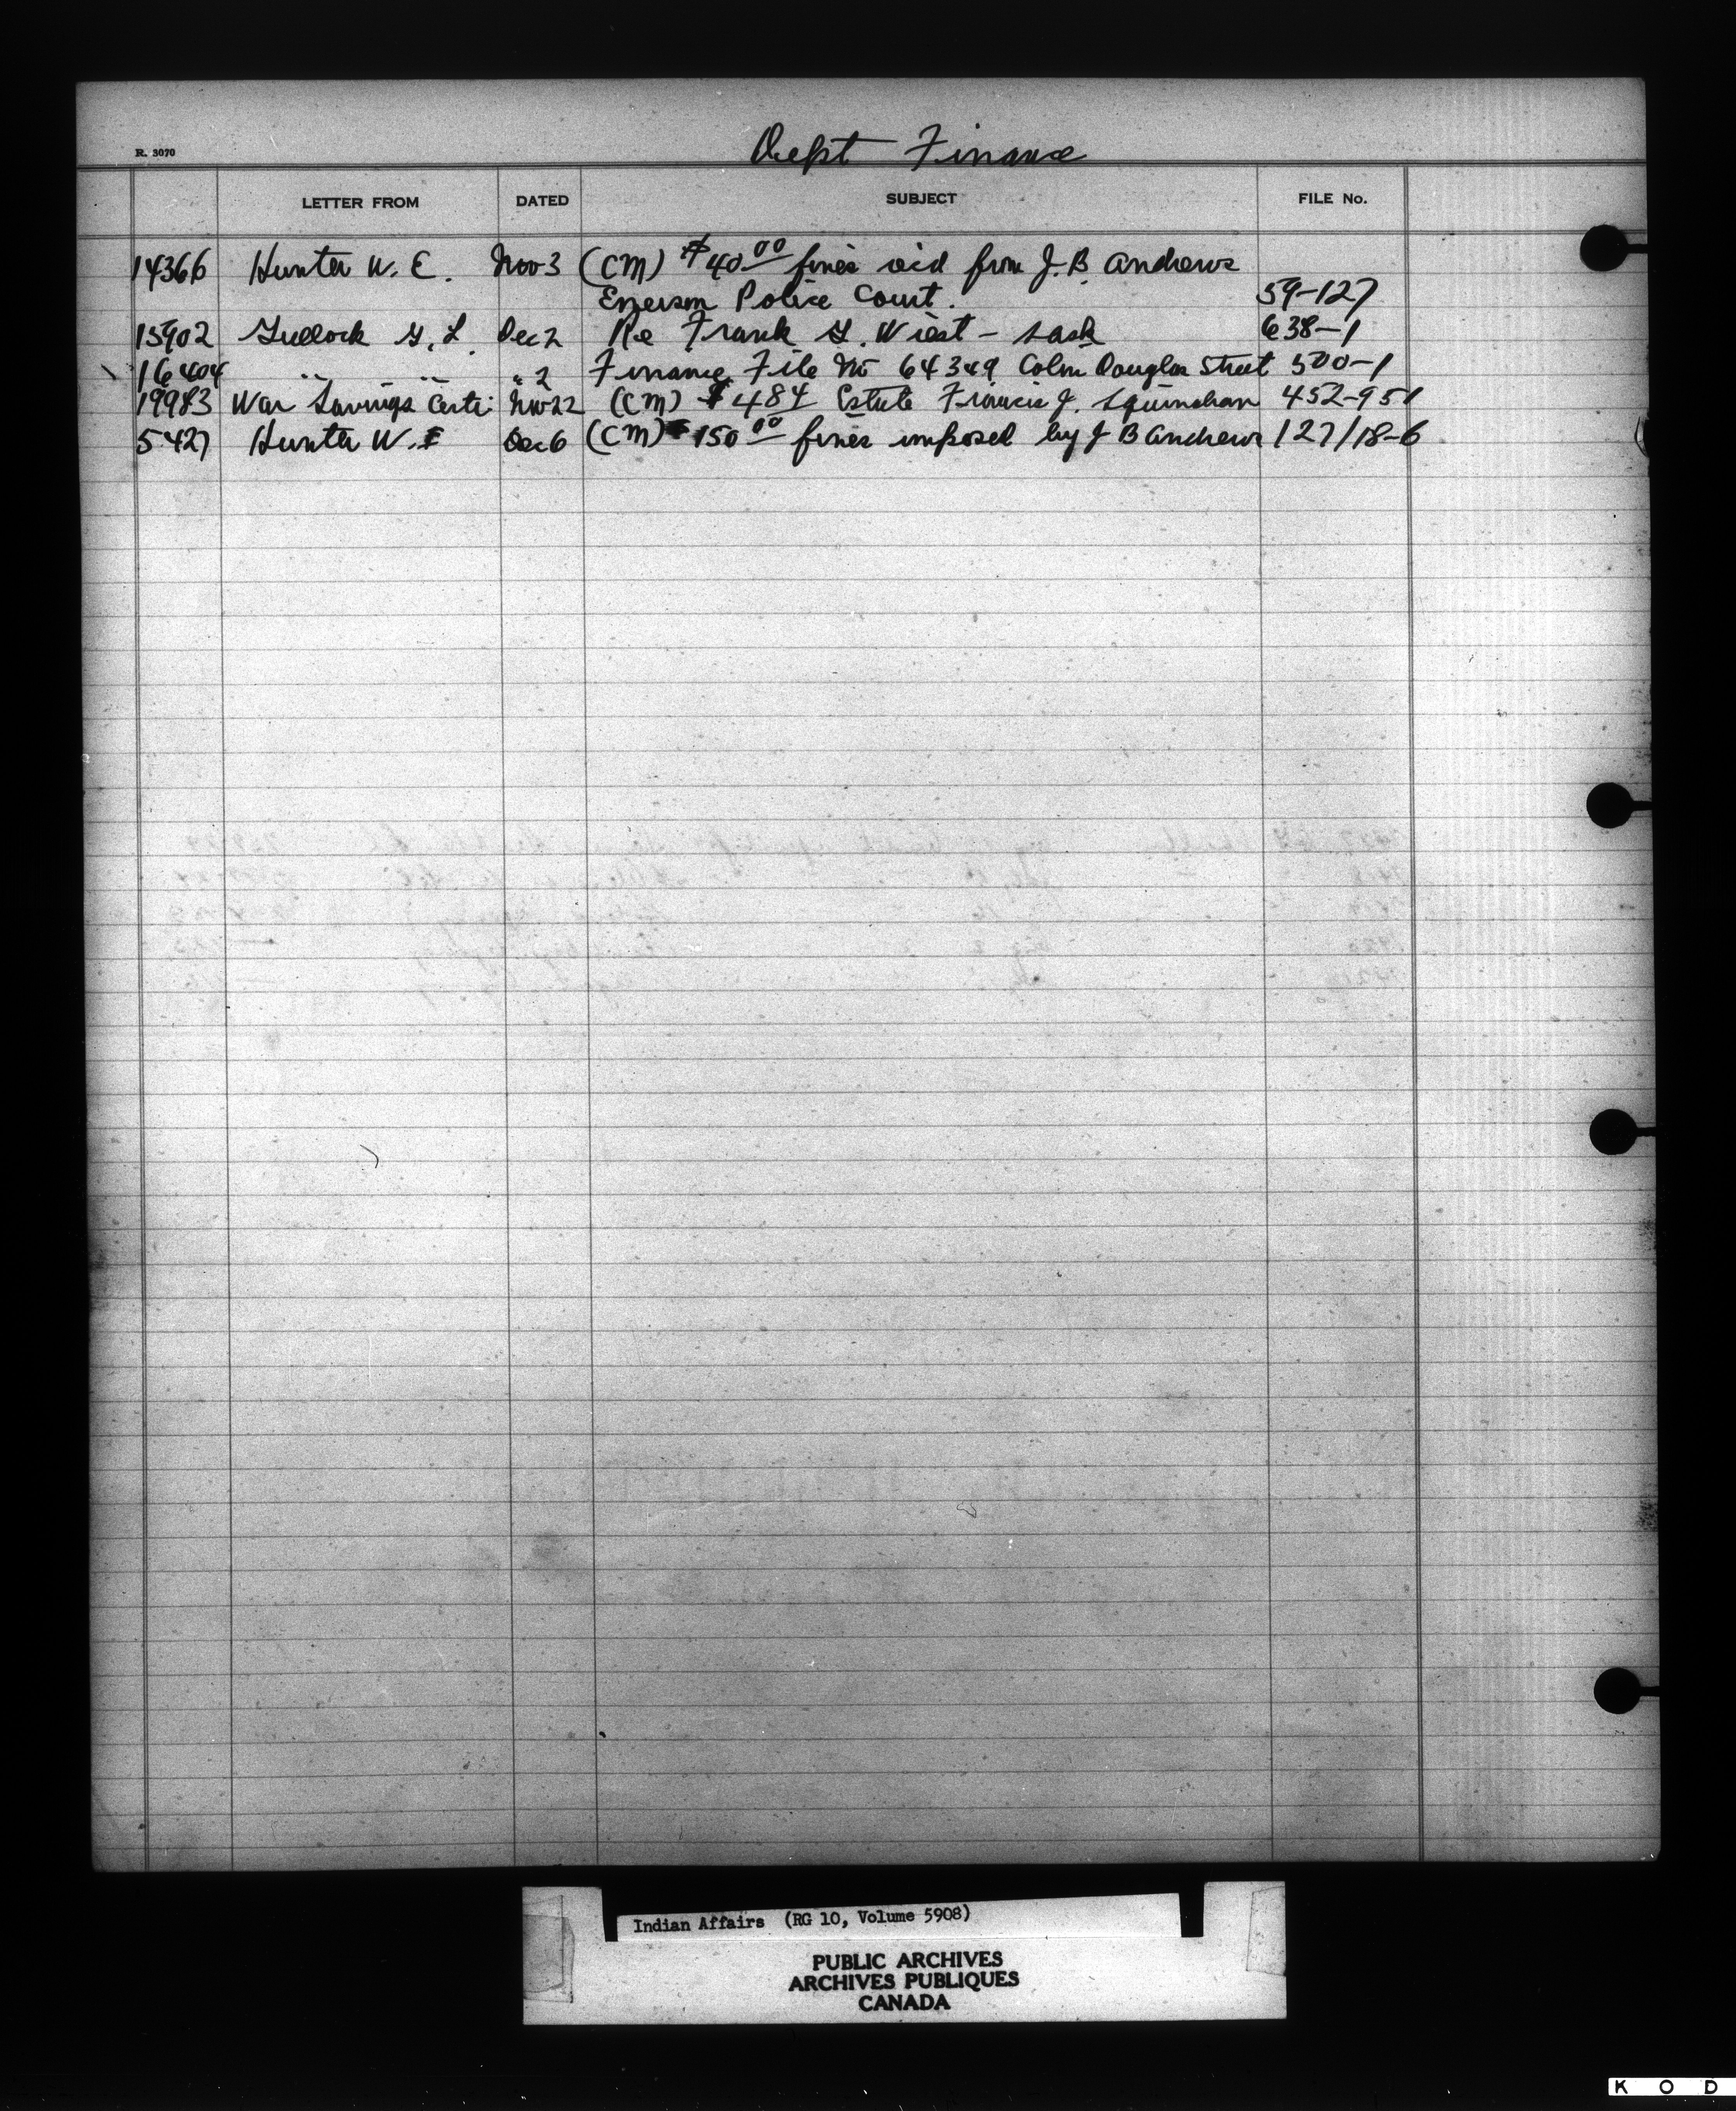 Dept Finance
R. 3070
LETTER FROM DATED SUBJECT FILE No.
14366 Hunter W. E. Nov 3 (CM) $40.00 fines rec'd from J. B. Andrews
Police Court. 59-127
15902 G. L. Dec 2 Re Frank G. Wiest - Sask 638-1
16404 " " " 2 Finance File No 64349 Colm Douglas Street 500-1
19983 War Savings Certi: Nov 22 (CM) $484 Estate Francis J. 452-951
5427 Hunter W. E Dec 6 (CM) $150.00 fines imposed by J B Andrews 127/18-6
Indian Affairs (RG 10, Volume 5908)
PUBLIC ARCHIVES
ARCHIVES PUBLIQUES
CANADA
K O D